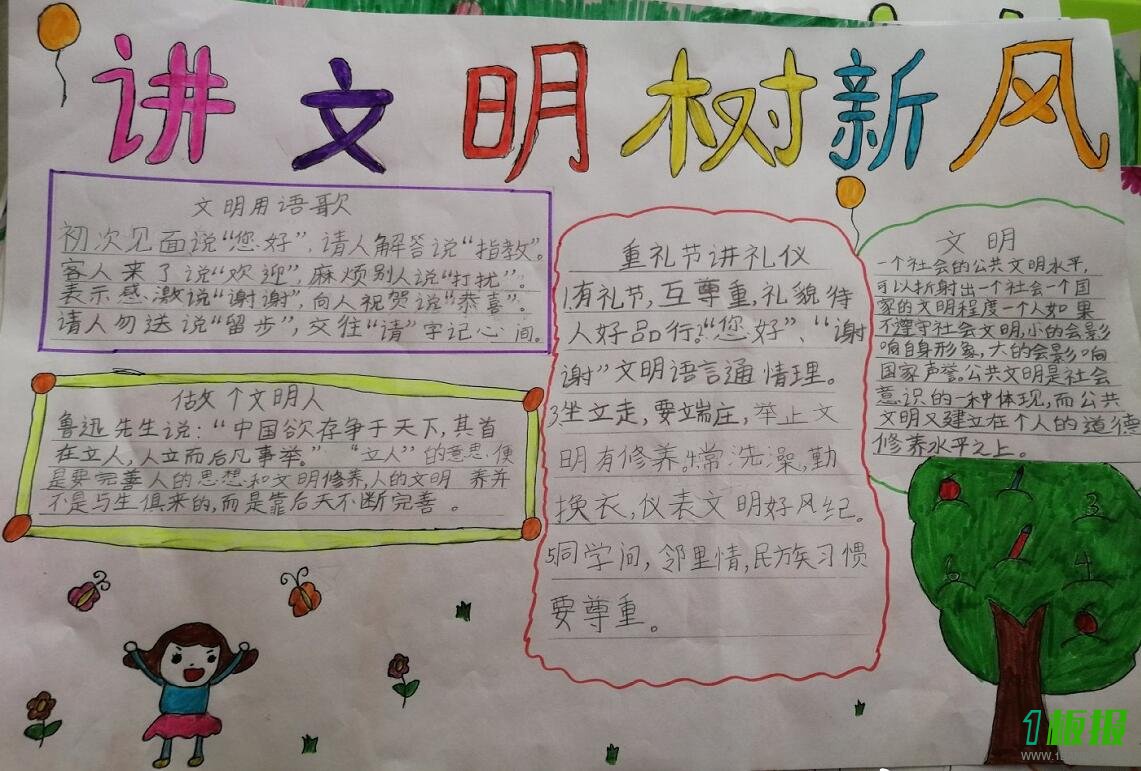 讲文明树新风
文明用语歌
初次见面说“您好”,请人解答说“指教”。
客人来了说“欢迎”,麻烦别人说“打扰”。
表示感激说“谢谢”,向人祝贺说“恭喜”。
请人勿送说“留步”,交往“请”字记心间。
做个文明人
鲁迅先生说:“中国欲存争于天下,其首
在立人,人立而后凡事举。”“立人”的意思,便
是要完善人的思想和文明修养,人的文明 养并
不是与生俱来的,而是靠后天不断完善。
重礼节讲礼仪
1.有礼节,互尊重,礼貌待
人好品行。2“您好”、“谢
谢”文明语言通情理。
3坐立走,要端庄,举止文
明有修养。4常洗澡,勤
换衣,仪表文明好风纪。
5同学间,邻里情,民族习惯
要尊重。
文明
一个社会的公共文明水平,
可以折射出一个社会一个国
家的文明程度一个人如果
不遵守社会文明,小的会影
响自身形象,大的会影响
国家声誉。公共文明是社会
意识的一种体现,而公共
文明又建立在个人的道德
修养水平之上。
3
6
4
1板报